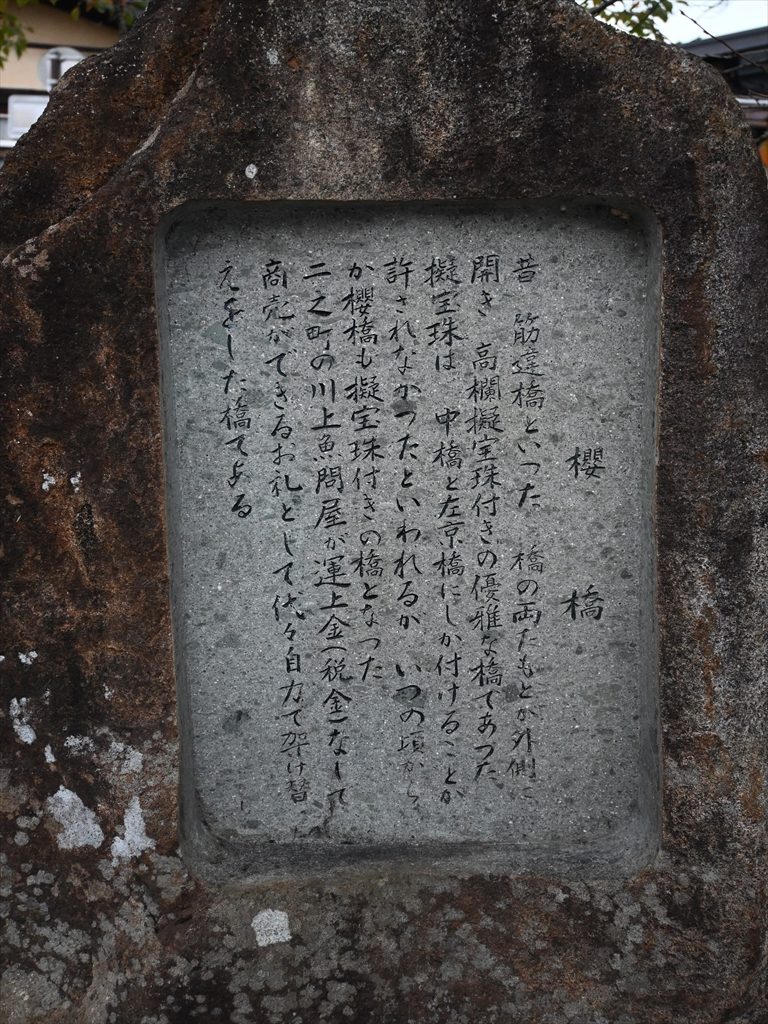 櫻橋
昔 筋違橋といった 橋の両たもとが外側に
開き 高欄擬宝珠付きの優雅な橋であった
擬宝珠は 中橋と左京橋にしか付けることが
許されなかったといわれるが いつの頃から
か櫻橋も擬宝珠付きの橋となった
二之町の川上魚問屋が運上金(税金)なしで
商売ができるお礼として代々自力で架け替
えをした橋である